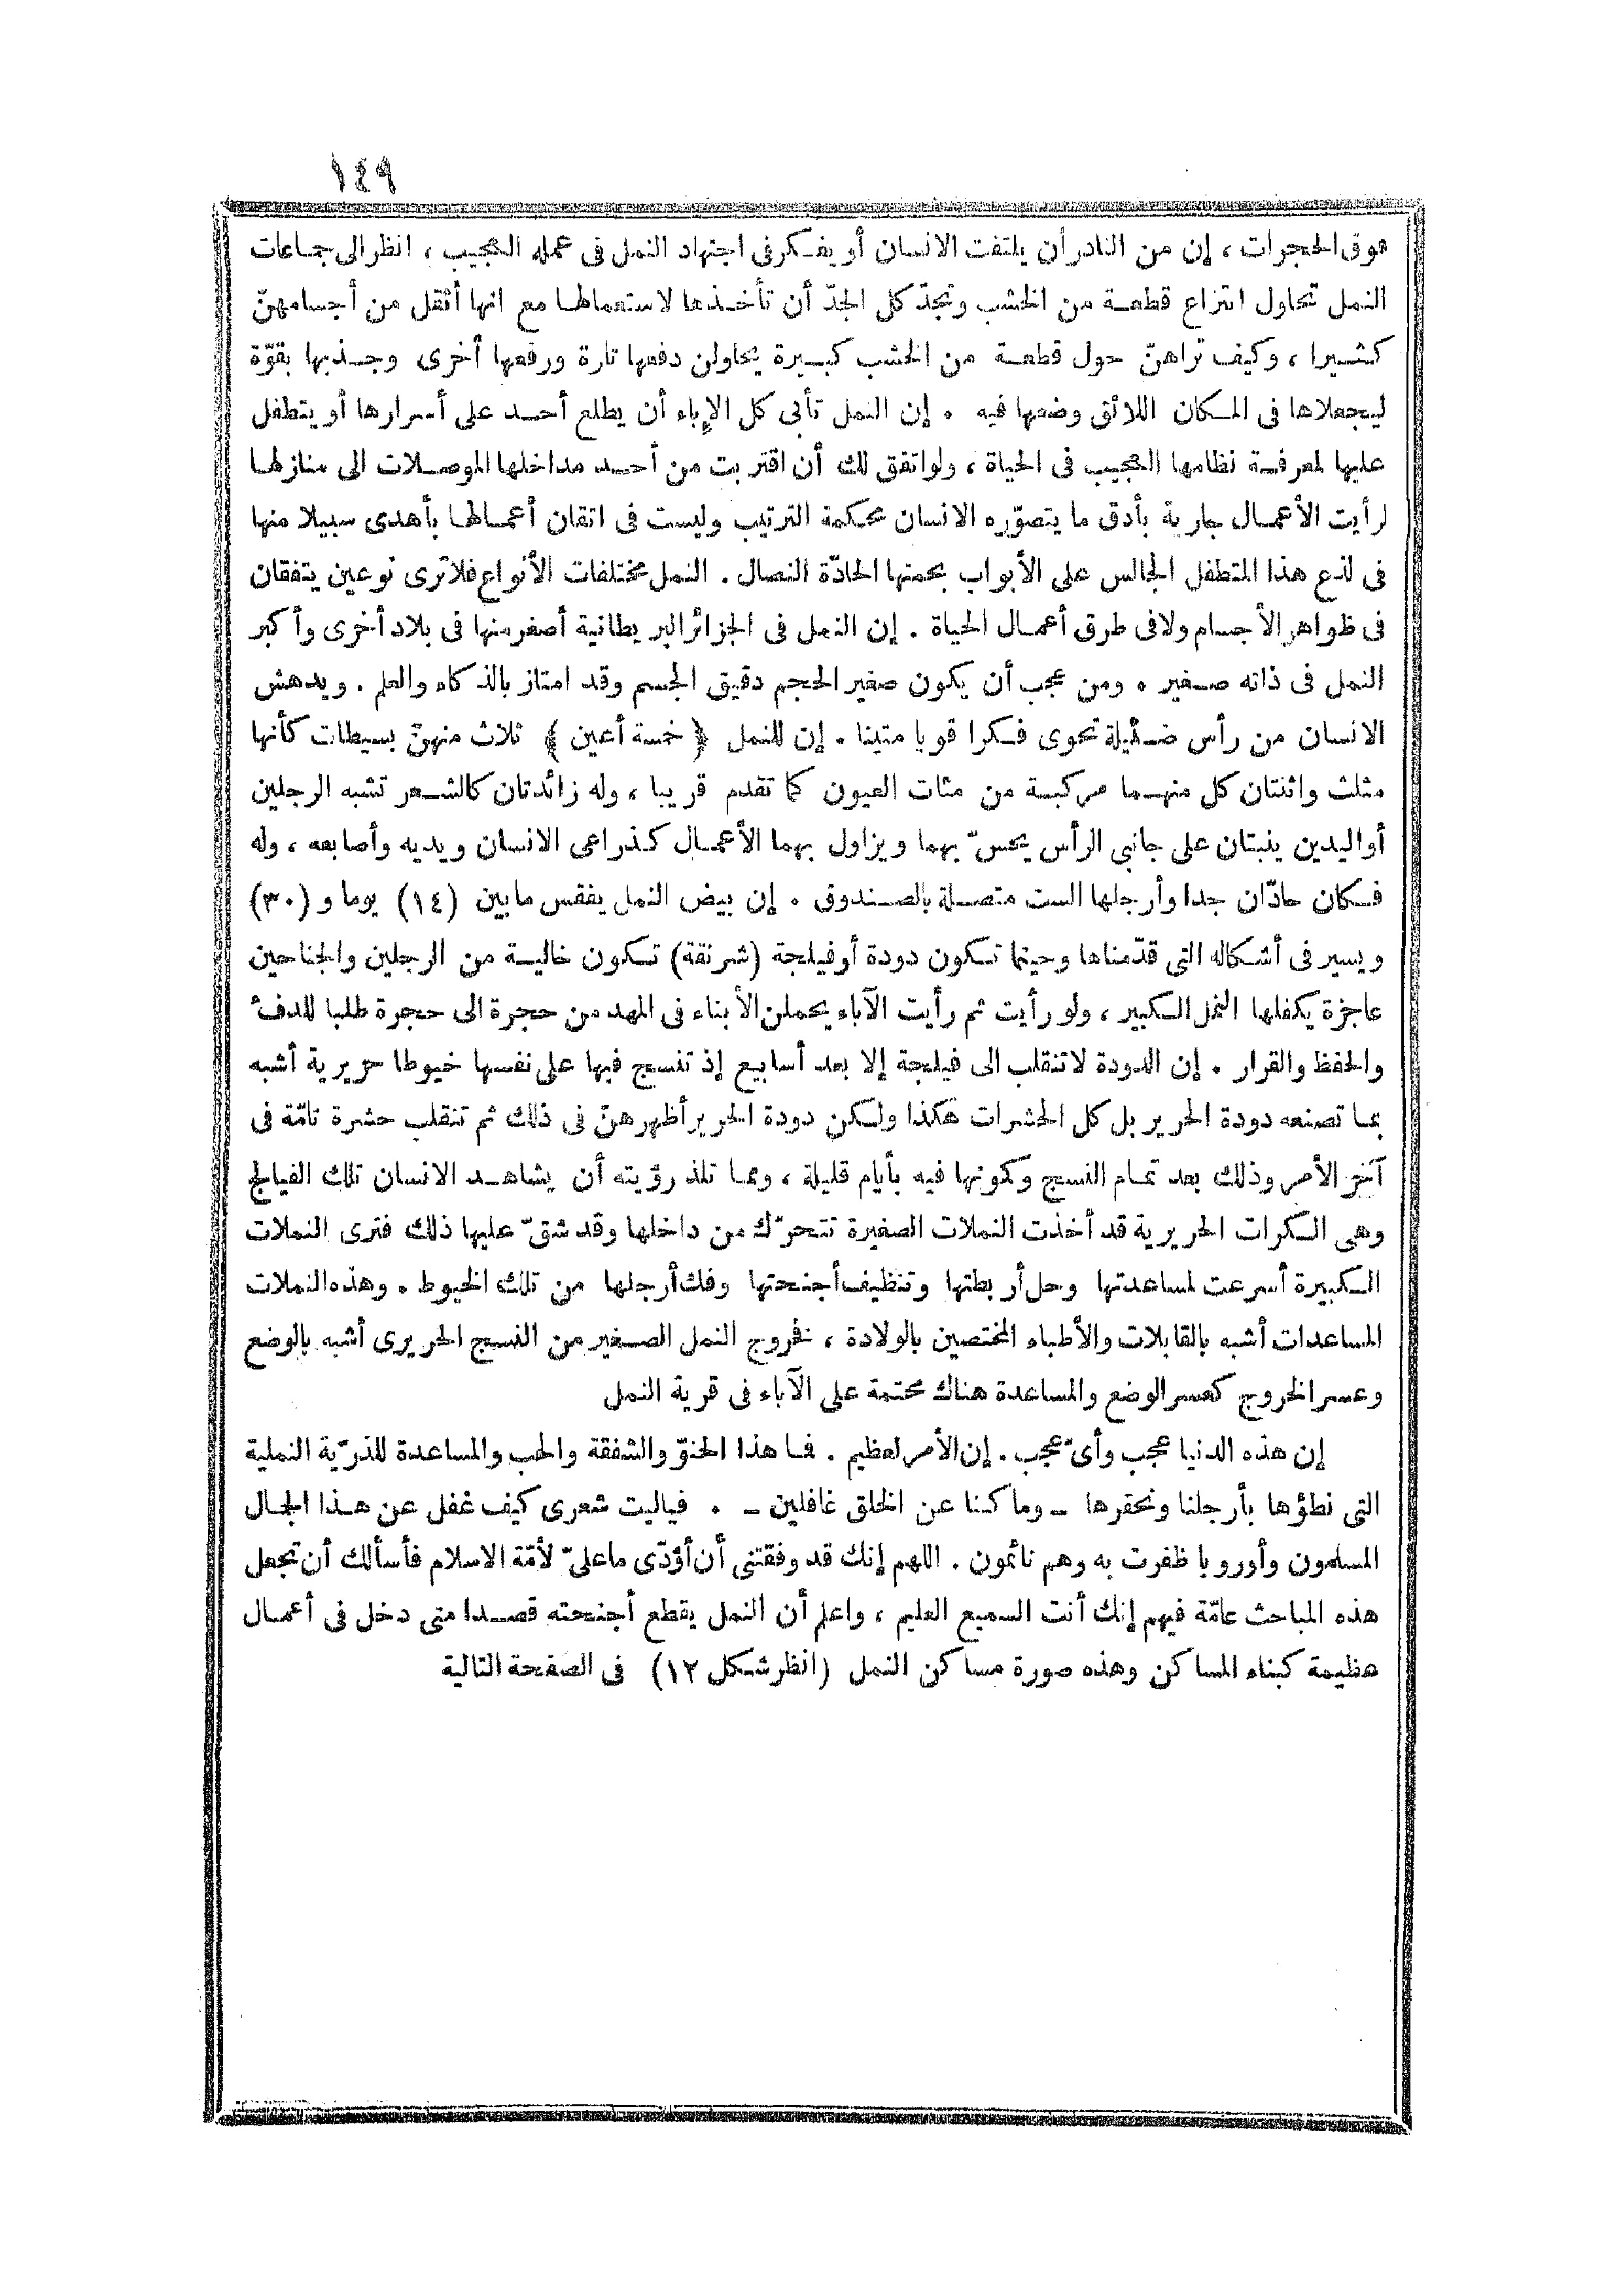 ١٤٩
فوق الحجرات ، إن من النادر أن يلتفت الانسان أو يفكر فى اجتهاد النمل فى عمله العجيب ، انظر الى جماعات
النمل تحاول انتزاع قطعة من الخشب وتجدّ كل الجدّ أن تأخذها لاستعمالها مع انها أثقل من أجسامهنّ
كثيرا ، وكيف تراهنّ حول قطعة من الخشب كبيرة يحاولن دفعها تارة ورفعها أخرى وجذبها بقوّة
ليجعلاها فى المكان اللائق وضعها فيه . إن النمل تأبى كل الإباء أن يطلع أحد على أسرارها أو يتطفل
عليها لمعرفة نظامها العجيب فى الحياة ، ولو اتفق لك أن اقتربت من أحد مداخلها الموصلات الى منازلها
لرأيت الأعمال جارية بأدق ما يتصوّره الانسان محكمة الترتيب وليست فى اتقان أعمالها بأهدى سبيلا منها
فى لذع هذا المتطفل الجالس على الأبواب بحمتها الحادّة النصال . النمل مختلفات الأنواع فلا ترى نوعين يتفقان
فى ظواهر الأجسام ولا فى طرق أعمال الحياة . إن النمل فى الجزائر البريطانية أصغر منها فى بلاد أخرى وأكبر
النمل فى ذاته صغير . ومن عجب أن يكون صغير الحجم دقيق الجسم وقد امتاز بالذكاء والعلم . ويدهش
الانسان من رأس ضئيلة تحوى فكرا قويا متينا . إن للنمل ﴿ خمسة أعين ﴾ ثلاث منهنّ بسيطات كأنها
مثلث واثنتان كل منهما مركبة من مئات العيون كما تقدم قريبا ، وله زائدتان كالشعر تشبه الرجلين
أو اليدين ينبتان على جانبى الرأس يحسّ بهما ويزاول بهما الأعمال كذراعى الانسان ويديه وأصابعه ، وله
فكان حادّان جدا وأرجلها الست متصلة بالصندوق . إن بيض النمل يفقس مابين (١٤) يوما و (٣٠)
ويسير فى أشكاله التى قدّمناها وحينما تكون دودة أو فيلجة (شرنقة) تكون خالية من الرجلين والجناحين
عاجزة يكفلها النمل الكبير ، ولو رأيت ثم رأيت الآباء يحملن الأبناء فى المهد من حجرة الى حجرة طلبا للدفء
والحفظ والقرار . إن الدودة لا تنقلب الى فيلجة إلا بعد أسابيع إذ تنسج فيها على نفسها خيوطا حريرية أشبه
بما تصنعه دودة الحرير بل كل الحشرات هكذا ولكن دودة الحرير أظهرهنّ فى ذلك ثم تنقلب حشرة تامّة فى
آخر الأمر وذلك بعد تمام النسج وكونها فيه بأيام قليلة ، ومما تلذ رؤيته أن يشاهد الانسان تلك الفيالج
وهى الكرات الحريرية قد أخذت النملات الصغيرة تتحرّك من داخلها وقد شقّ عليها ذلك فترى النملات
الكبيرة أسرعت لمساعدتها وحل أربطتها وتنظيف أجنحتها وفك أرجلها من تلك الخيوط . وهذه النملات
المساعدات أشبه بالقابلات والأطباء المختصين بالولادة ، فخروج النمل الصغير من النسج الحريرى أشبه بالوضع
وعسر الخروج كعسر الوضع والمساعدة هناك محتمة على الآباء فى قرية النمل
إن هذه الدنيا عجب وأىّ عجب . إن الأمر لعظيم . فما هذا الحنوّ والشفقة والحب والمساعدة للذرّية النملية
التى نطؤها بأرجلنا ونحقرها ـ وما كنا عن الخلق غافلين ـ . فياليت شعرى كيف غفل عن هذا الجمال
المسلمون وأوروبا ظفرت به وهم نائمون . اللهم إنك قد وفقتنى أن أؤدّى ماعلىّ لأمّة الاسلام فأسألك أن تجعل
هذه المباحث عامّة فيهم إنك أنت السميع العليم ، واعلم أن النمل يقطع أجنحته قصدا متى دخل فى أعمال
عظيمة كبناء المساكن وهذه صورة مساكن النمل (انظر شكل ١٢) فى الصفحة التالية